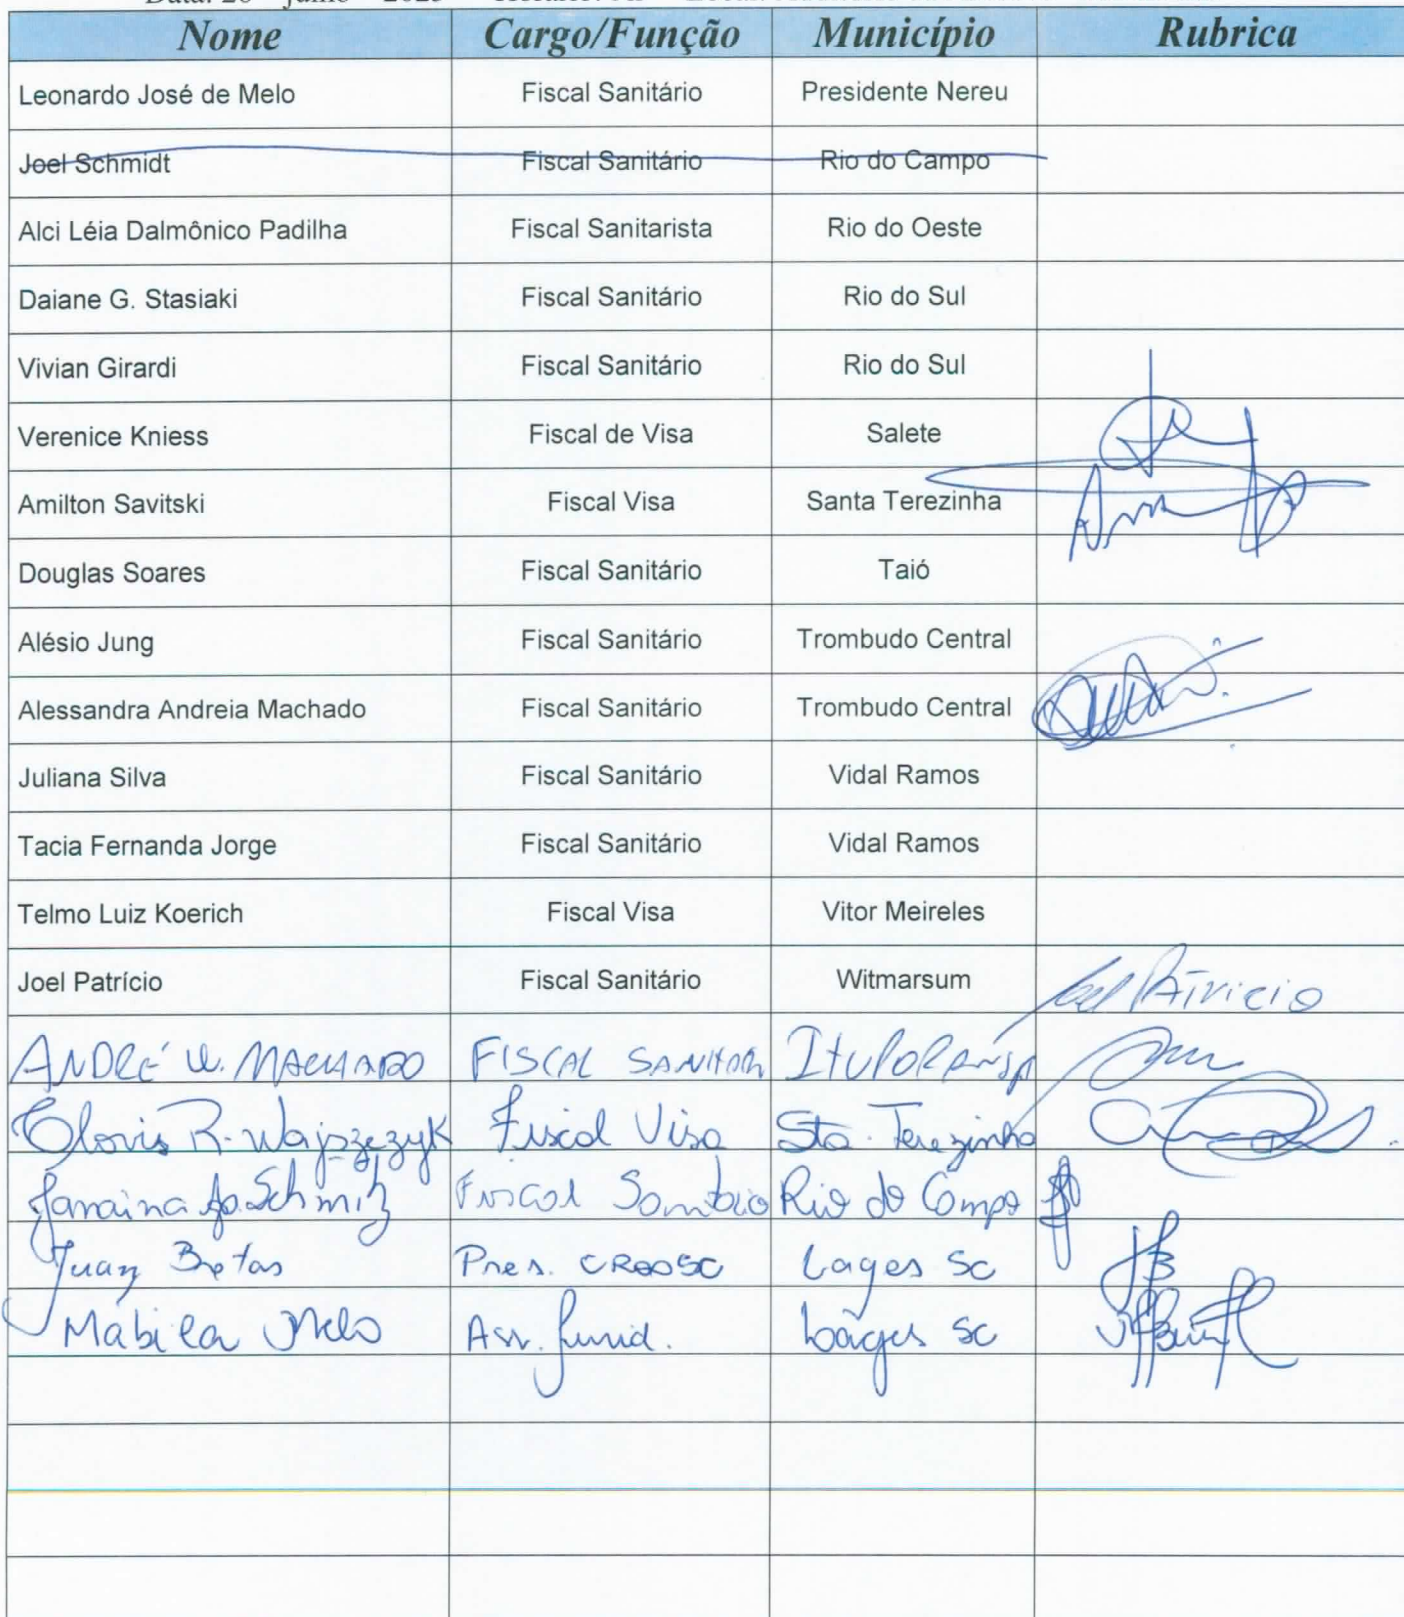 Nome Cargo/Função Município Rubrica
Leonardo José de Melo Fiscal Sanitário Presidente Nereu
Joel Schmidt Fiscal Sanitário Rio do Campo
Alci Léia Dalmônico Padilha Fiscal Sanitarista Rio do Oeste
Daiane G. Stasiaki Fiscal Sanitário Rio do Sul
Vivian Girardi Fiscal Sanitário Rio do Sul
Verenice Kniess Fiscal de Visa Salete
Amilton Savitski Fiscal Visa Santa Terezinha
Douglas Soares Fiscal Sanitário Taió
Alésio Jung Fiscal Sanitário Trombudo Central
Alessandra Andreia Machado Fiscal Sanitário Trombudo Central
Juliana Silva Fiscal Sanitário Vidal Ramos
Tacia Fernanda Jorge Fiscal Sanitário Vidal Ramos
Telmo Luiz Koerich Fiscal Visa Vitor Meireles
Joel Patrício Fiscal Sanitário Witmarsum Joel Patricio
ANDRÉ W. MACHADO FISCAL
Clovis R. Wajszczyk Fiscal Visa Sta. Terezinha
Janaina Ap. Schmitz Fiscal Rio do Campo
Juan Bretas Pres. CROSC Lages SC
Mabilea Melo Ass. Jurid. Lages SC